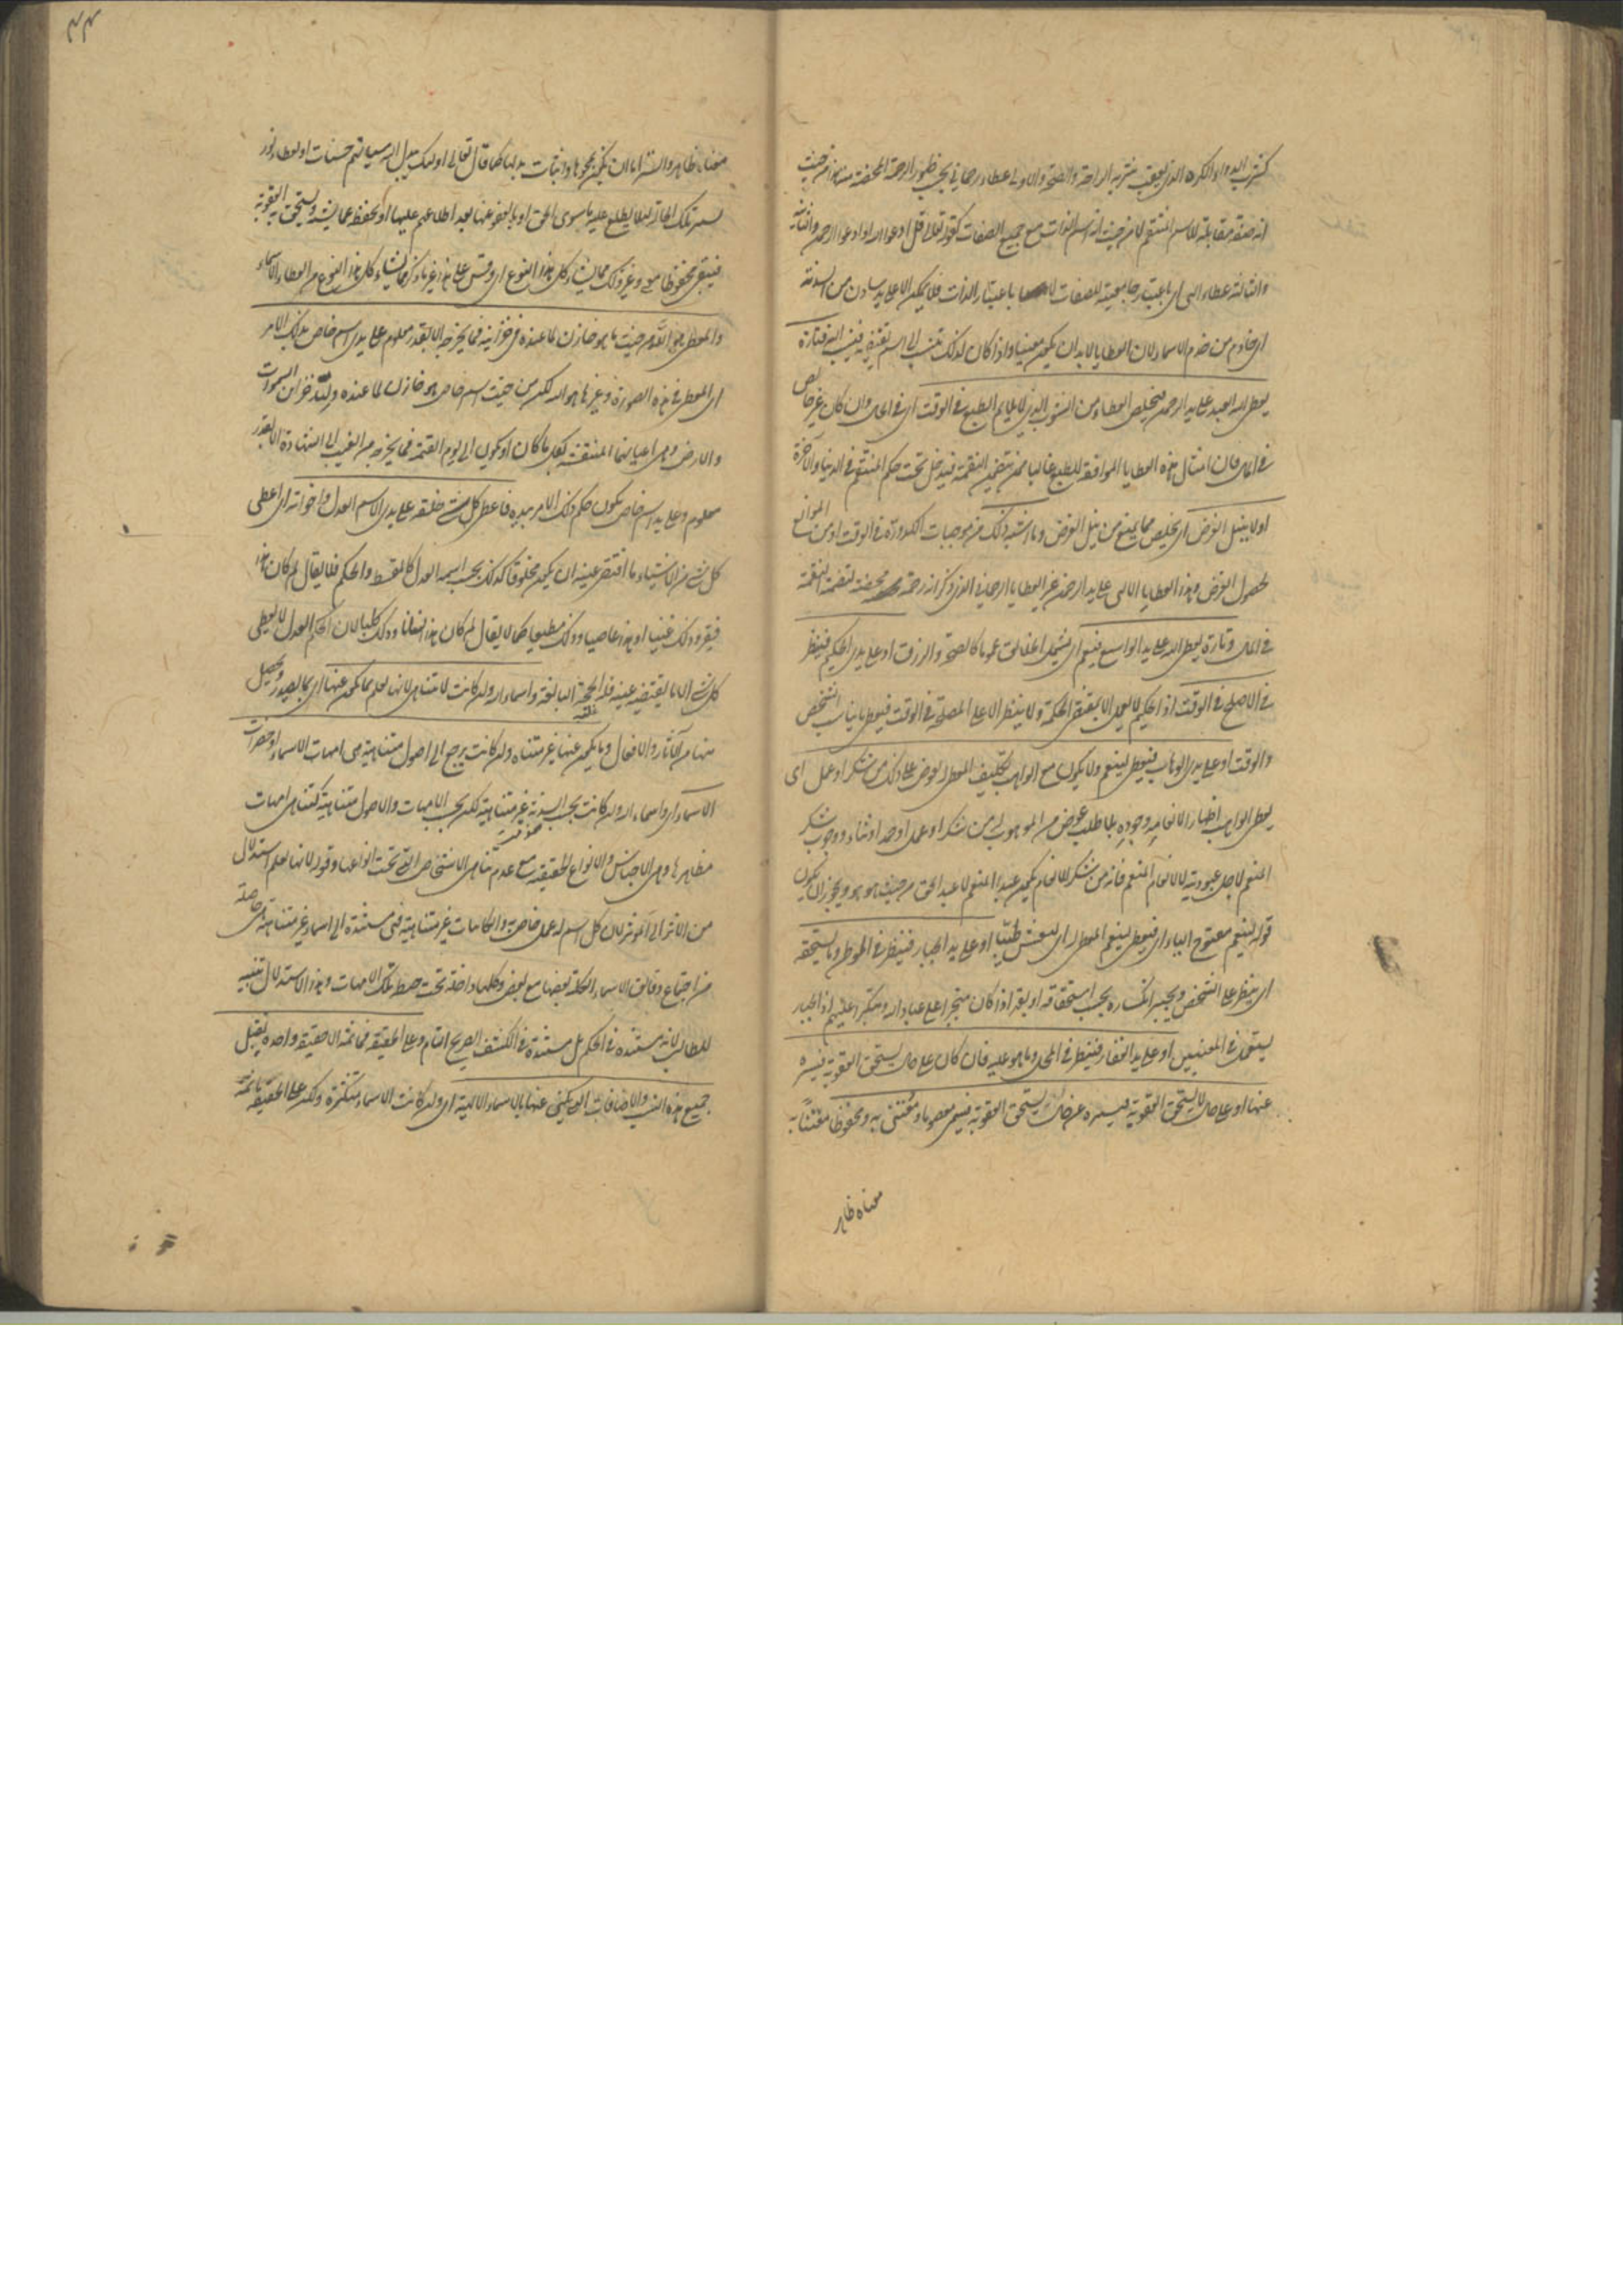 كشرب الدواء الكره الذي يعقب شربه الراحة والصحة والاولى عطاء رحماني بحسب ظهور الرحمة المحضة منه من حيث
انه صفة مقابلة للاسم المنتقم لا من حيث انه اسم الذات مع جميع الصفات كقوله تعالى قل ادعوا الله او ادعوا الرحمن والثانية
والثالثة عطاء الهي اي باعتبار جامعيته للصفات لا باعتبار الذات فلا يمكن الا على يد سادن من السدنة
اي خادم من خدم الاسماء لان العطايا لا بد ان يكون معينا واذا كان كذلك تنسب الى اسم يقتضيه فينسب اليه فتارة
يعطي الله العبد على يد الرحمن فيخلص العطاء من الشوب الذي لا يلايم الطبع في الوقت اي في الحال وان كان غير خالص
في المآل فان امثال هذه العطايا الموافقة للطبع غالبا مما يتضمن النقمة فيدخل تحت حكم المنتقم في الدنيا والآخرة
او لا ينيل الغرض اي يخلص مما يمنع من نيل الغرض وما اشبه ذلك من موجبات الكدورة في الوقت او من الموانع
لحصول الغرض وهذه العطايا الالهي على يد الرحمن غير العطايا الرحماني الذي ذكر انه رحمة محضة لتضمنه النقمة
في المآل وتارة يعطي الله على يد الواسع فيعم اي يشمل الخلائق عموما كالصحة والرزق او على يد الحكيم فينظر
في الاصلح في الوقت اذ الحكيم لا يعمل الا بمقتضى الحكمة ولا ينظر الا على المصلحة في الوقت فيعطي ما يناسب الشخص
والوقت او على يدي الوهاب فيعطي لينعم ولا يكون مع الواهب تكليف المعطى له بعوض على ذلك من شكر او عمل اي
يعطي الواهب اظهارا لانعامه وجوده بلا طلب عوض من الموهوب له من شكر او عمل او حمد او ثناء ووجوب شكر
المنعم لاجل عبوديته لا لانعام المنعم فانه من شكر للانعام يكون عبد المنعم لا عبد الحق من حيث هو هو ويجوز ان يكون
قوله لينعم مفتوح الياء اي فيعطي لينعم المعطى له اي ليعيش طيبا او على يد الجبار فينظر في الموطن وما يستحقه
اي ينظر على الشخص ويجبر انكساره بحسب استحقاقه او يقهر اذا كان متجبرا على عباد الله ومتكبرا عليهم اذ الجبار
يستعمل في المعنيين او على يد الغفار فينظر في المحل وما هو عليه فان كان على حال يستحق العقوبة فيستره
عنها او على حال لا يستحق العقوبة فيستره عن حال يستحق العقوبة فيسمى معصوما ومعتنى به ومحفوظا معتنا به
معناه ظاهر
٤٤
معناه ظاهر والستر اما ان يكون بمحوها واثبات بدلها كما قال تعالى اولئك يبدل الله سيئاتهم حسنات او بعطاء نور
يستر تلك الحالة لئلا يطلع عليه ما سوى الحق او بالعفو عنها بعد اطلاعهم عليها او يحفظ عما يشينه ويستحق به العقوبة
فيبقى محفوظا وغير ذلك مما يشاء كل هذا النوع اي وقس على هذا غير ما ذكر مما يشاء كل هذا النوع من العطاء الاسماء
والمعطي هو الله من حيث ما هو خازن لما عنده في خزائنه فما يخرجه الا بقدر معلوم على يدي اسم خاص بذلك الامر
اي المعطي في هذه الصورة وغيرها هو الله لكن من حيث اسم خاص هو خازن لما عنده ولله خزائن السموات
والارض وهي اعيانها المنتقشة بكل ما كان او يكون الى يوم القيمة فما يخرجه من الغيب الى الشهادة الا بقدر
معلوم وعلى يد اسم خاص يكون حكم ذلك الامر بيده فاعطى كل شيء خلقه على يدي الاسم العدل واخواته اي اعطى
كل شيء من الاشياء ما اقتضى عينه ان يكون مخلوقا كذلك بحسب اسمه العدل كالمقسط والحكم فلا يقال لم كان هذا
فقيرا وذلك غنيا او هذا عاصيا وذلك مطيعا كما لا يقال لم كان هذا انسانا وذلك كلبا لان الحكم العدل لا يعطي
كل شيء الا ما يقتضيه عينه فلله الحجة البالغة واسماء الله وان كانت لا تتناهى لانها تعلم بما يكون عنها اي بما يصدر ويحصل
منها من الآثار والافعال وما يكون عنها غير متناه وان كانت يرجع الى اصول متناهية هي امهات الاسماء او حضرات
الاسماء اي واسماء الله وان كانت بحسب السدنة غير متناهية لكن بحسب الامهات والاصول متناهية كتناهي امهات
مظاهرها وهي الاجناس والانواع الحقيقية مع عدم تناهي الاشخاص التي تحت انواعها وقوله لانها تعلم استدلال
من الاثر الى المؤثر لان كل اسم له عمل خاص والكائنات غير متناهية فهي مستندة الى اسماء غير متناهية هي حاصلة
من اجتماع رقائق الاسماء الكلية بعضها مع بعض وكلها داخلة تحت ضبط تلك الامهات وهذا الاستدلال تنبيه
للطالب لانه مستنده في الحكم بل مستنده في الكشف الصريح التام وعلى الحقيقة فما ثمة الا حقيقة واحدة يقبل
جميع هذه النسب والاضافات التي يكنى عنها بالاسماء الالهية اي وان كانت الاسماء متكثرة ولكن على الحقيقة ما ثمة